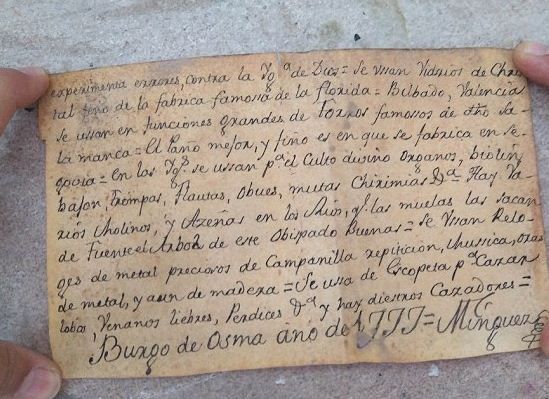 experimenta errores, contra la Yg.ª de Dios = Se ussan Vidrios de Chris
tal fino de la fabrica famossa de la florida = Bilbado, Valencia
se ussan en funciones grandes de tornos famosos de dho Sa-
la manca = el Pano mejor, y fino es en que se fabrica en Se-
govia = en las Yg.s se ussan p.ª el Culto divino organos, biolin,
bajon, trompas, flautas, obues, mutas Chirimias &.ª = Hay Va-
rios Molinos, y Azeñas en los Rios, q.e las muelas las sacan
de Fuente el Arbol de este Obispado Buenas = Se Ussan Relo-
ges de metal preciosos de Campanilla repitición, Mussica, otros
de metal, y aun de madera = Se ussa de Escopeta p.ª Cazar
lobos, Venanos liebres, Perdices &.ª y hay diestros Cazadores =
Burgo de Osma año de 1777 = Mínguez